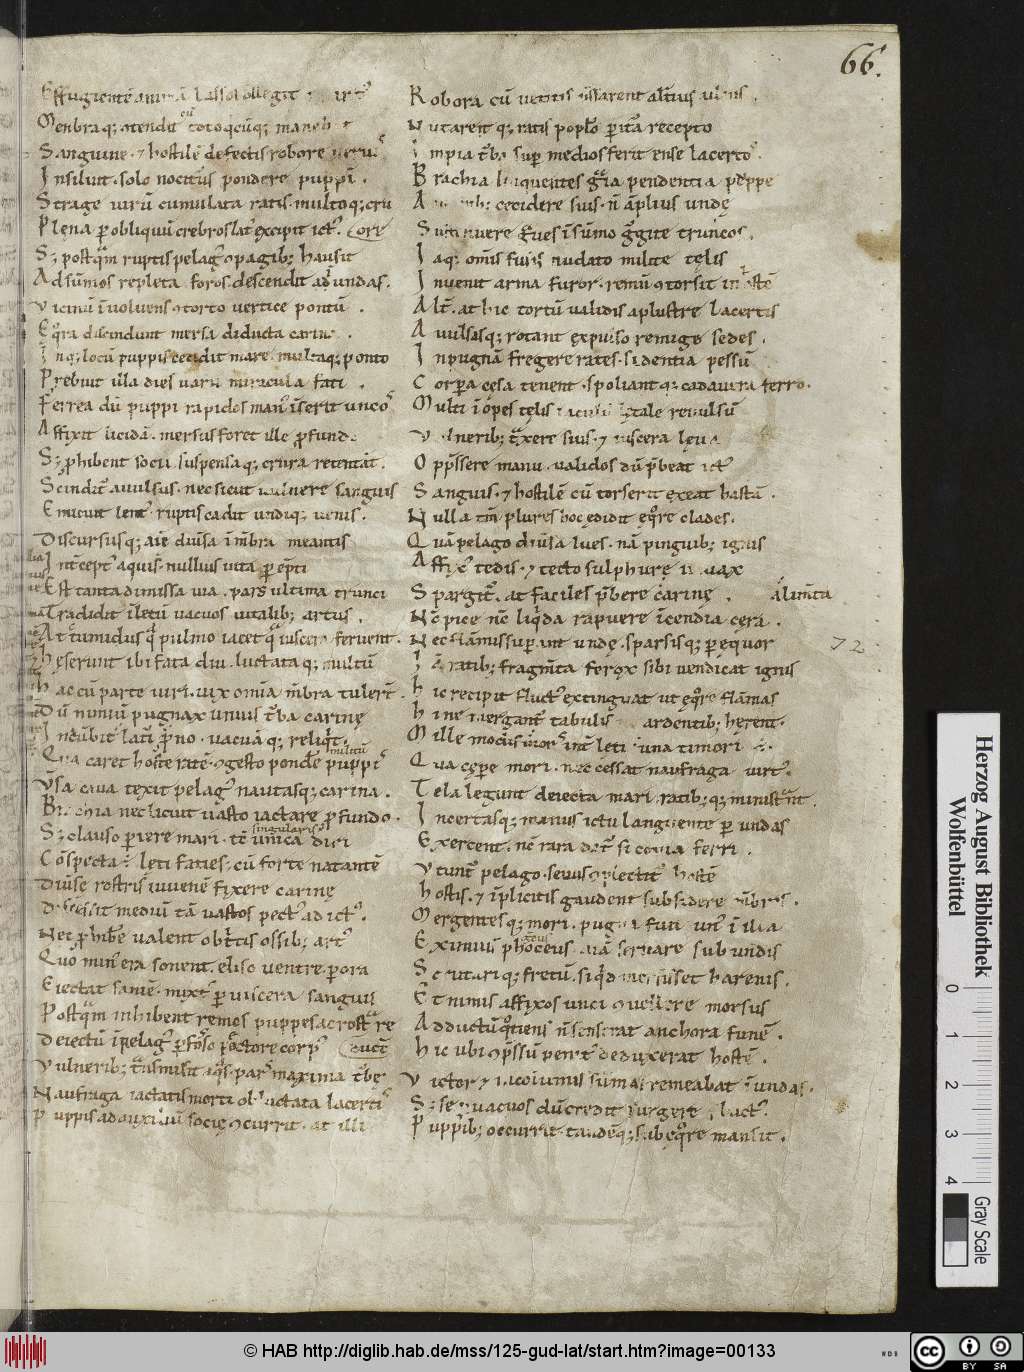 66.
Effugientē animā lassos collegit
Menbraq; ɔtendit toto qͥcūq; maneb
Sanguine ⁊ hostilē defectis robore
Insiluit solo nocitus pondere puppī.
Strage uirū cumulata ratis multoq; cru
Plena ꝑ obliquū crebros latꝰ excipit ictꝰ. ore
S; postqͣm ruptis pelagꝰ ɔpagib; hausit
Ad sūmos repleta foros descendit ad undas.
Vicinū īuoluens ɔtorto uertice pontū.
Eqͦra discindunt mersa diducta carin
Inq; locū puppis cecidit mare. multaq; ponto
Prebuit illa dies uarii miracula fati.
Ferrea dū puppi rapidos manꝰ īserit uncoˢ
Affixit licidā. mersus foret ille ꝓfund
S; ꝓhibent socii suspensaq; crura retentāt.
Scinditͬ auulsus. nec sicut uulnere sanguis
Emicuit lentꝰ. ruptis cadit undiq; uenis.
Discursusq; aīe diuīsa ī mēbra meantis
Intceptꝰ aquis. nullius uita ꝑēpti
Est tanta dimissa uia. pars ultima trunci
Tradidit ī letū uacuos uitalib; artus.
At tumidus qͣ pulmo iacet qͣ uiscera feruent.
Heserunt ibi fata diu. luctataq; multū
Hac cū parte uiri. uix omīa mēbra tulerͭ.
Dū nimiū pugnax unius tͬba carine
Incūbit lateri prono. uacuāq; relinqͭ
Qua caret hoste ratē. ɔgesto pondē puppiˢ militū
Vsa caua texit pelagꝰ nautasq; carina.
Brachia nec licuit uasto iactare ꝓfundo.
S; clauso ꝑiere mari. tc̄ unica diri singularis
Cōspecta leti facies. cū forte natantē
Diuīse rostris iuuenē fixere carine
Discessit mediū tā uastos pectꝰ ad ictꝰ.
Nec ꝓhibēe ualent obtͥtis ossib; artꝰ
Quo minꝰ era sonent. eliso uentre ꝑ ora
Eiectat saniē mixtꝰ ꝑ uiscera sanguis
Postqͣm inhibent remos puppes ac rostͬa re
Deiectū ī pelagꝰ ꝑfosso pectore corpꝰ ducūt
Vulnerib; tͣnsmisit aqͣs. pars maxima tͬbe
Naufraga iactatis morti obluctata lacertiˢ
Puppis ad auxiliū socie ɔcurrit. at illi
Robora cū uetitis pͥnsarent altius ulnis.
Nutaretq; ratis poplo ꝑitura recepto
Impia tͬba suꝑ medios ferit ense lacertoˢ.
Brachia linquentes gͣia pendentia puppe
A manib; cecidere suis. n̄ āplius unde
Sustinuere graues ī sūmo gͬgite truncos.
Iāq; omīs fusis nudato milite telis
Inuenit arma furor. remū ɔtorsit in hostē
Altͬ. at hic tortū ualidis aplustre lacertis
Auulsasq; rotant expulso remige sedes.
In pugnā fregere rates. sidentia pessū
Corꝑa cesa tenent. spoliantq; cadauera ferro.
Multi īopes telis iaculū letale reuulsū
Vulnerib; tͣxere suis. ⁊ uiscera leua
Opp̄ssere manu. ualidos dū p̄beat ictꝰ
Sanguis. ⁊ hostilē cū torserit exeat hastā.
Nulla tm̄ plures hoc edidit eqͦre clades.
Quā pelago diuīsa lues. nā pinguib; ignis
Affixꝰ tedis. ⁊ tecto sulphure uiuax
Spargitͬ. at faciles p̄bere carine. alimīta
Nc̄ pice nc̄ liqͥda rapuere īcendia cera.
Nec flāmis suꝑant unde. sparsisq; ꝑ equor
Iā ratib; fragmīta ferox sibi uendicat ignis
Hic recipit fluctꝰ extinguat ut eqͦre flāmas
Hi ne mergantͬ tabulis ardentib; herent.
Mille modos īter leti mors una timori ē.
Qua cepere mori. nec cessat naufraga uirtꝰ.
Tela legunt deiecta mari. ratib;q; ministͬant.
Incertasq; manus ictu languente ꝑ undas
Exercent. nc̄ rara datͬ si copia ferri.
Vtuntͬ pelago. seuus ɔplectitͬ hostē
Hostis. ⁊ īplicitis gaudent subsidere mēbris.
Mergentesq; mori. pugna fuit unꝰ ī illa
Eximius phoceus aīam seruare sub undis
Scrutariq; fretū. si qͥd mersisset harenis.
Et nimis affixos unci ɔuellere morsus
Adductū qͦtiens n̄ senserat anchora funē.
Hic ubi ɔpͬssū penitꝰ deduxerat hostē.
Victor ⁊ incolumis sūmas remeabat ī undas.
S; se ꝑ uacuos dū credit surgere fluctꝰ.
Puppib; occurrit. tandēq; sub eqͦre mansit.
72
Herzog August Bibliothek
Wolfenbüttel
0 1 2 3 4
Gray Scale
© HAB http://diglib.hab.de/mss/125-gud-lat/start.htm?image=00133
WDB
CC BY SA